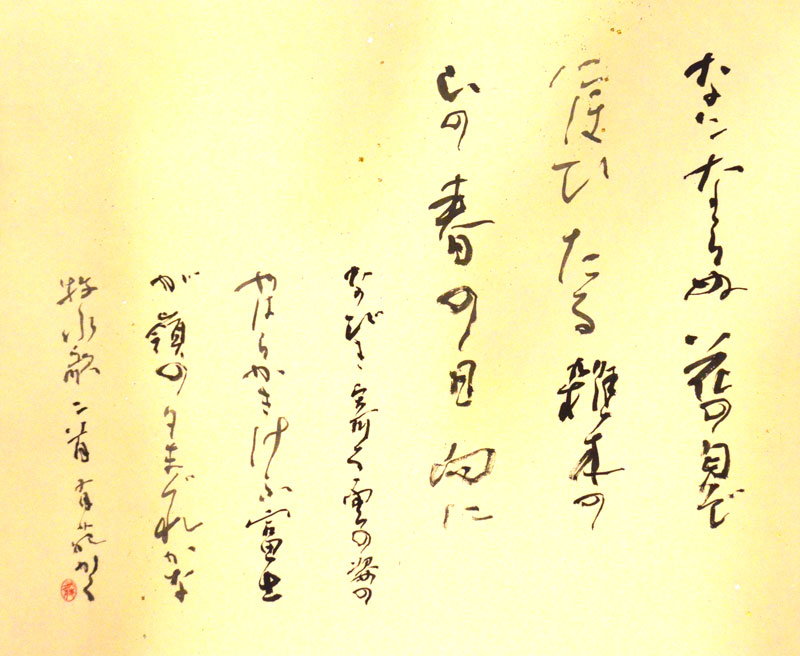 なにならぬ花の匂ぞ
にほひたる雑木の
山の春の日向に
なびき寄る雲の姿の
やはらかきけふ富士
が嶺の夕まぐれかな
牧水歌二首